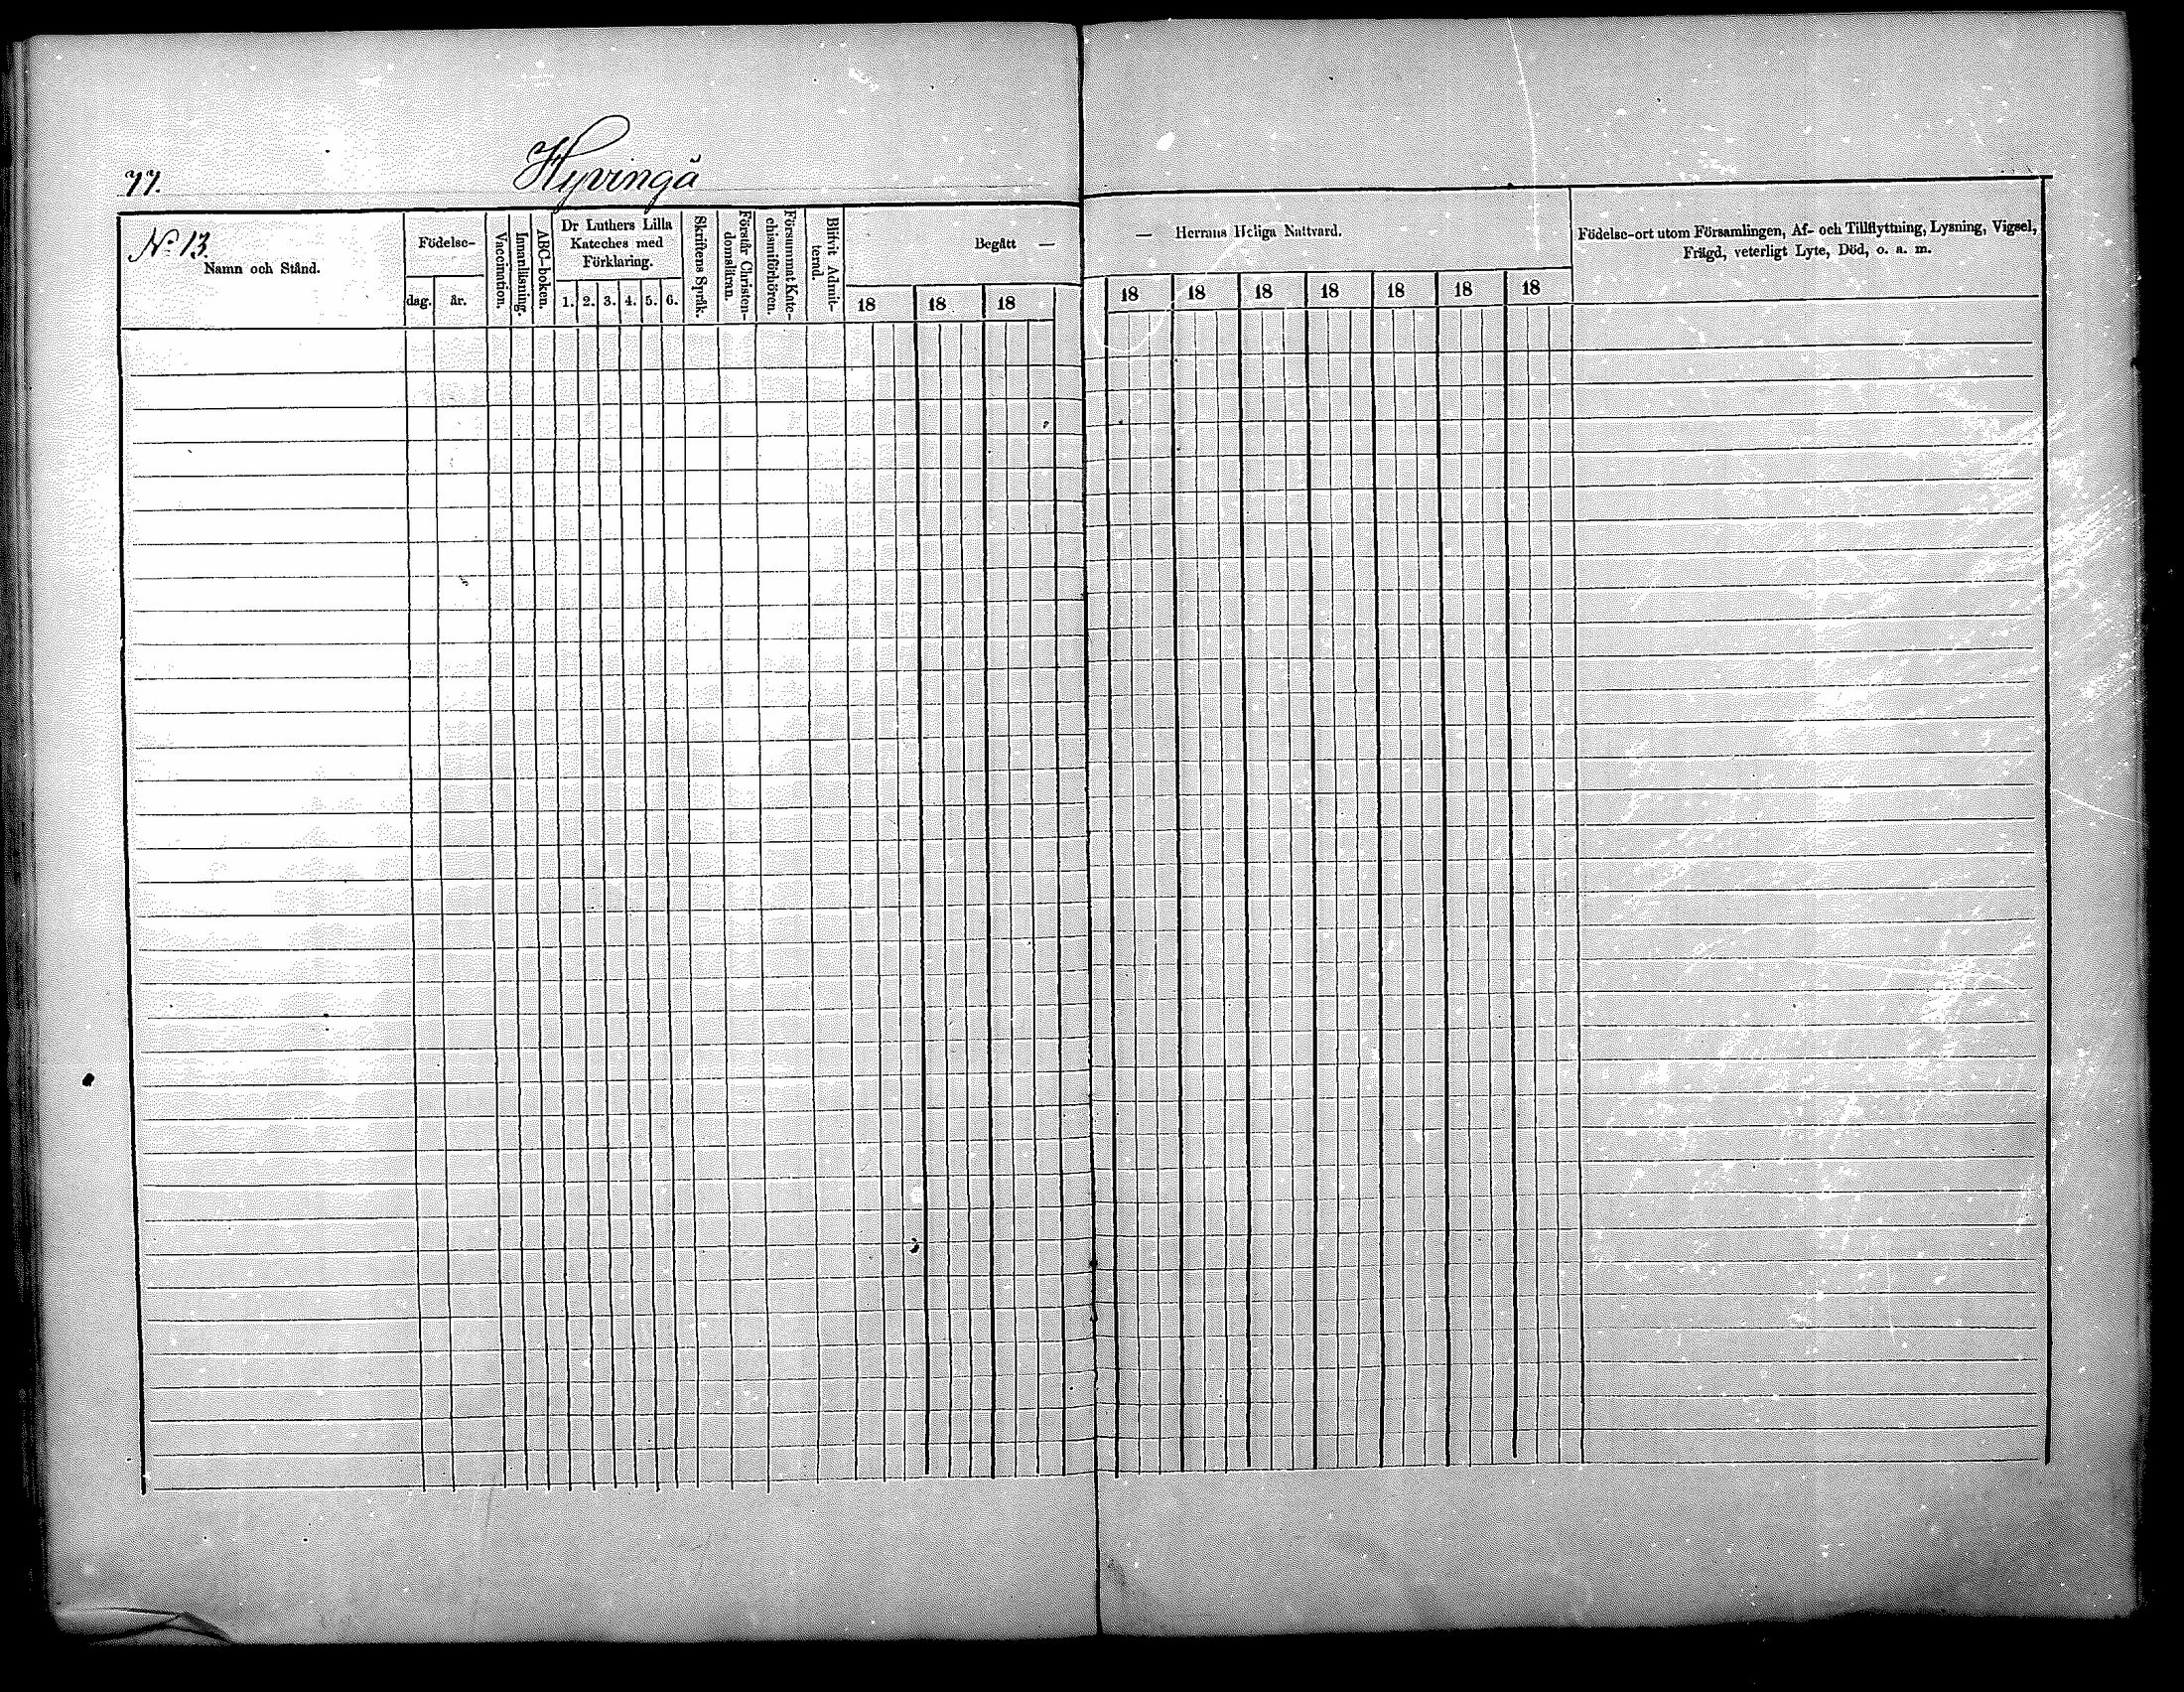 77.
Hyvingä
No 13.
Namn och Stånd.
Födelse-
dag.
år.
Vaccination.
Innanläsning.
ABC-boken.
Dr Luthers Lilla
Kateches med
Förklaring.
1. 2. 3. 4. 5. 6.
Skriftens Språk.
Förstår Christen-
domsläran.
Försummat Kate-
chismiförhören.
Blifvit Admit-
terad.
Begått —
18 18 18
— Herrans Heliga Nattvard.
18 18 18 18 18 18 18
Födelse-ort utom Församlingen, Af- och Tillflyttning, Lysning, Vigsel,
Frägd, veterligt Lyte, Död, o. a. m.